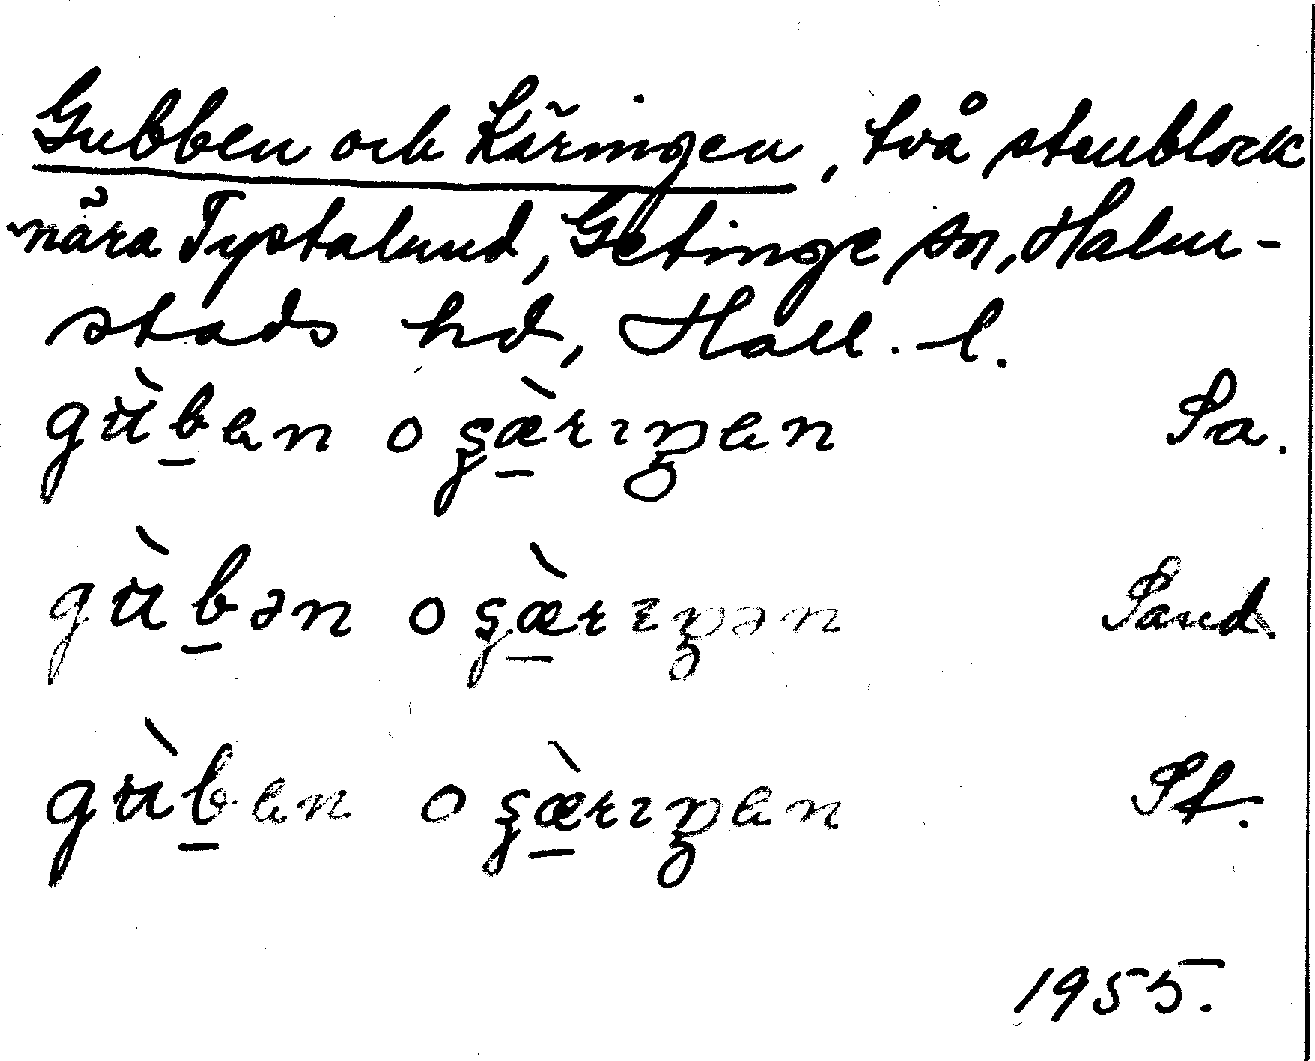 Gubben och Käringen, två stenblock
nära Tystalund, Getinge sn, Halm-
stads hd, Hall. l.
gùb̲en o şæ̲̀rıŋen Sa.
gùb̲ən o şæ̲̀rıŋən Sand.
gùb̲en o şæ̲̀rıŋen St.
1955.